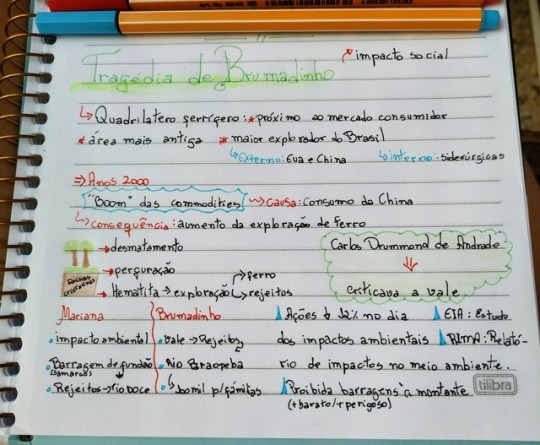 impacto social
Tragédia de Brumadinho
Quadrilátero ferrífero: *próximo ao mercado consumidor
*área mais antiga *maior explorador do Brasil
Externo: Eua e China interno: siderúrgicas
Anos 2000
"Boom" das commodities causa: consumo da China
consequência: aumento da exploração de ferro
desmatamento
perfuração
Hematita → exploração
ferro
rejeitos
Carlos Drummond de Andrade
criticava a Vale
Mariana
impacto ambiental
Barragem de fundão
(Samarco)
Rejeitos → rio Doce
Brumadinho
Vale → Rejeitos
Rio Paraopeba
p/famílias
Ações ↓ % no dia
EIA: Estudo
dos impactos ambientais
RIMA: Relató-
rio de impactos no meio ambiente.
Proibida barragens à montante
(+barato/+perigoso)
tilibra